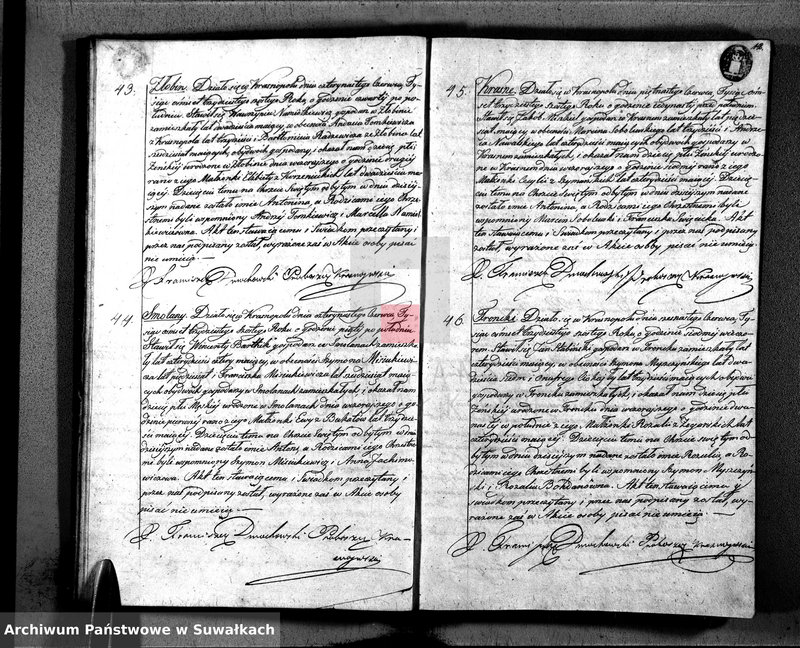 43. Żłobin. Działo się w Krasnopolu dnia czternastego Czerwca, Ty-
siąc ośmset trzydziestego szóstego Roku, o godzinie czwartej po po-
łudniu. Stawił się Wawrzyniec gospodarz w Żłobinie
zamieszkały lat maiący, w obecności Andrzeia Tomkiewicza
z Krasnopola lat trzydzieści i Bartłomieja ze Żłobina lat
maiących obydwóch gospodarzy, i okazał nam dziecię płci
Żeńskiej urodzone w Żłobinie dnia wczorajszego o godzinie drugiej
rano z iego Małżonki Elżbiety z lat dwadzieścia ma-
iącej. Dziecięciu temu na Chrzcie Świętym odbytym w dniu dzisiej-
szym nadane zostało imie Antonina, a Rodzicami iego Chrze-
stnemi byli wspomniony Andrzej Tomkiewicz i Marcella
Akt ten stawaiącemu i Świadkom przeczytany i
przez nas podpisany został, wyrażone zaś w Akcie osoby pisać
nie umieią. —
X. Franciszek Dmochowski Proboszcz Krasnopolski
44. Smolany. Działo się w Krasnopolu dnia czternastego Czerwca, Ty-
siąc ośmset trzydziestego szóstego Roku, o godzinie piątej po południu
Stawił się Wincenty Bartnik gospodarz w Smolanach zamieszka-
ły lat czterdzieści cztery maiący, w obecności Szymona Misiukiewi-
cza lat pięćdziesiąt i Franciszka Misiukiewicza lat sześdziesiąt maią-
cych obydwóch gospodarzy w Smolanach zamieszkałych, i okazał nam
dziecię płci Męskiej urodzone w Smolanach dnia wczorajszego o go-
dzinie pierwszej rano z iego Małżonki Ewy z lat trzydzie-
ści maiącej. Dziecięciu temu na Chrzcie Świętym odbytym w dniu
dzisiejszym nadane zostało imie Antoni, a Rodzicami iego Chrzestne-
mi byli wspomniony Szymon Misiukiewicz i Anna Jachimo-
wiczowa. Akt ten stawaiącemu i Świadkom przeczytany i
przez nas podpisany został, wyrażone zaś w Akcie osoby
pisać nie umieią. —
X. Franciszek Dmochowski Proboszcz Kra-
snopolski
45. Krasne. Działo się w Krasnopolu dnia piętnastego Czerwca, Tysiąc ośm-
set trzydziestego szóstego Roku o godzinie iedynastej przed południem
Stawił się Jakób gospodarz w Krasnem zamieszkały lat pięćdzie-
siąt maiący, w obecności Marcina Sobolewskiego lat trzydzieści i Andrze-
ia Nowalskiego lat czterdzieści maiących obydwóch gospodarzy w
Krasnem zamieszkałych, i okazał nam dziecię płci Żeńskiej urodzo-
ne w Krasnem dnia wczorajszego o godzinie siódmej rano z iego
Małżonki lat czterdzieści maiącej. Dziecię-
ciu temu na Chrzcie Świętym odbytym w dniu dzisiejszym nadane
zostało imie Antonina, a Rodzicami iego Chrzestnemi byli
wspomniony Marcin Sobolewski i Franciszka Akt
ten stawaiącemu i Świadkom przeczytany i przez nas podpisany
został, wyrażone zaś w Akcie osoby pisać nie umieią.
X. Franciszek Dmochowski Proboszcz Krasnopolski
46. Żroneika. Działo się w Krasnopolu dnia szesnastego Czerwca, Ty-
siąc ośmset trzydziestego szóstego Roku, o godzinie siódmej wieczo-
rem. Stawił się Jan gospodarz w zamieszkały lat
czterdzieści maiący, w obecności Szymona Myszczyńskiego lat dwa-
dzieścia siedm i Onufrego lat trzydzieści maiących obydwu
gospodarzy w zamieszkałych, i okazał nam dziecię płci
Żeńskiej urodzone w dnia wczorajszego o godzinie dwu-
nastej w południe z iego Małżonki Rozalii z lat
czterdzieści maiącej. Dziecięciu temu na Chrzcie Świętym od-
bytym w dniu dzisiejszym nadane zostało imie Rozalia, a Ro-
dzicami iego Chrzestnemi byli wspomniony Szymon Myszczyń-
ski i Rozalia Bohdanowa. Akt ten stawaiącemu i
świadkom przeczytany i przez nas podpisany został, wy-
rażone zaś w Akcie osoby pisać nie umieią. —
X. Franciszek Dmochowski Proboszcz Krasnopolski
Archiwum Państwowe w Suwałkach